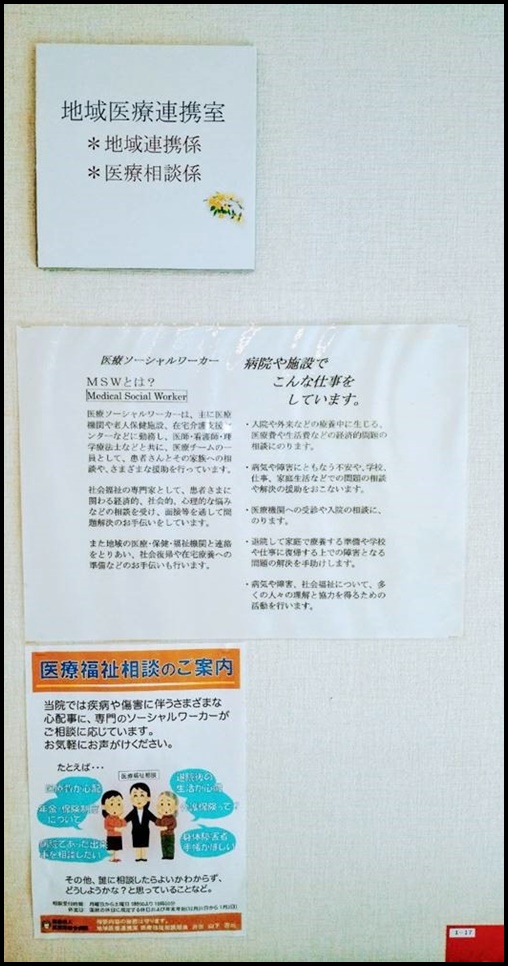 地域医療連携室
＊地域連携係
＊医療相談係
医療ソーシャルワーカー
MSWとは？
Medical Social Worker
医療ソーシャルワーカーは、主に医療
機関や老人保健施設、在宅介護支援セ
ンターなどに勤務し、医師・看護師・理
学療法士などと共に、医療チームの一
員として、患者さんとその家族への相
談や、さまざまな援助を行っています。
社会福祉の専門家として、患者さまに
関わる経済的、社会的、心理的な悩み
などの相談を受け、面接等を通して問
題解決のお手伝いをしています。
また地域の医療・保健・福祉機関と連絡
をとりあい、社会復帰や在宅療養への
準備などのお手伝いも行います。
病院や施設で
こんな仕事を
しています。
・入院や外来などの療養中に生じる、
医療費や生活費などの経済的問題の
相談にのります。
・病気や障害にともなう不安や、学校、
仕事、家庭生活などでの問題の相談
や解決の援助をおこないます。
・医療機関への受診や入院の相談に、
のります。
・退院して家庭で療養する準備や学校
や仕事に復帰する上での障害となる
問題の解決を手助けします。
・病気や障害、社会福祉について、多
くの人々の理解と協力を得るための
活動を行います。
医療福祉相談のご案内
当院では疾病や傷害に伴うさまざまな
心配事に、専門のソーシャルワーカーが
ご相談に応じています。
お気軽にお声がけください。
たとえば・・・
医療福祉相談
医療費が心配
退院後の
生活が心配
年金・保険制度
について
介護保険って？
病院であった出来
事を相談したい
身体障害者
手帳がほしい
その他、誰に相談したらよいかわからず、
どうしようかな？と思っていることなど。
相談受付時間 月曜日から土曜日
相談内容の秘密は守ります。
地域医療連携室 医療福祉相談
1-17